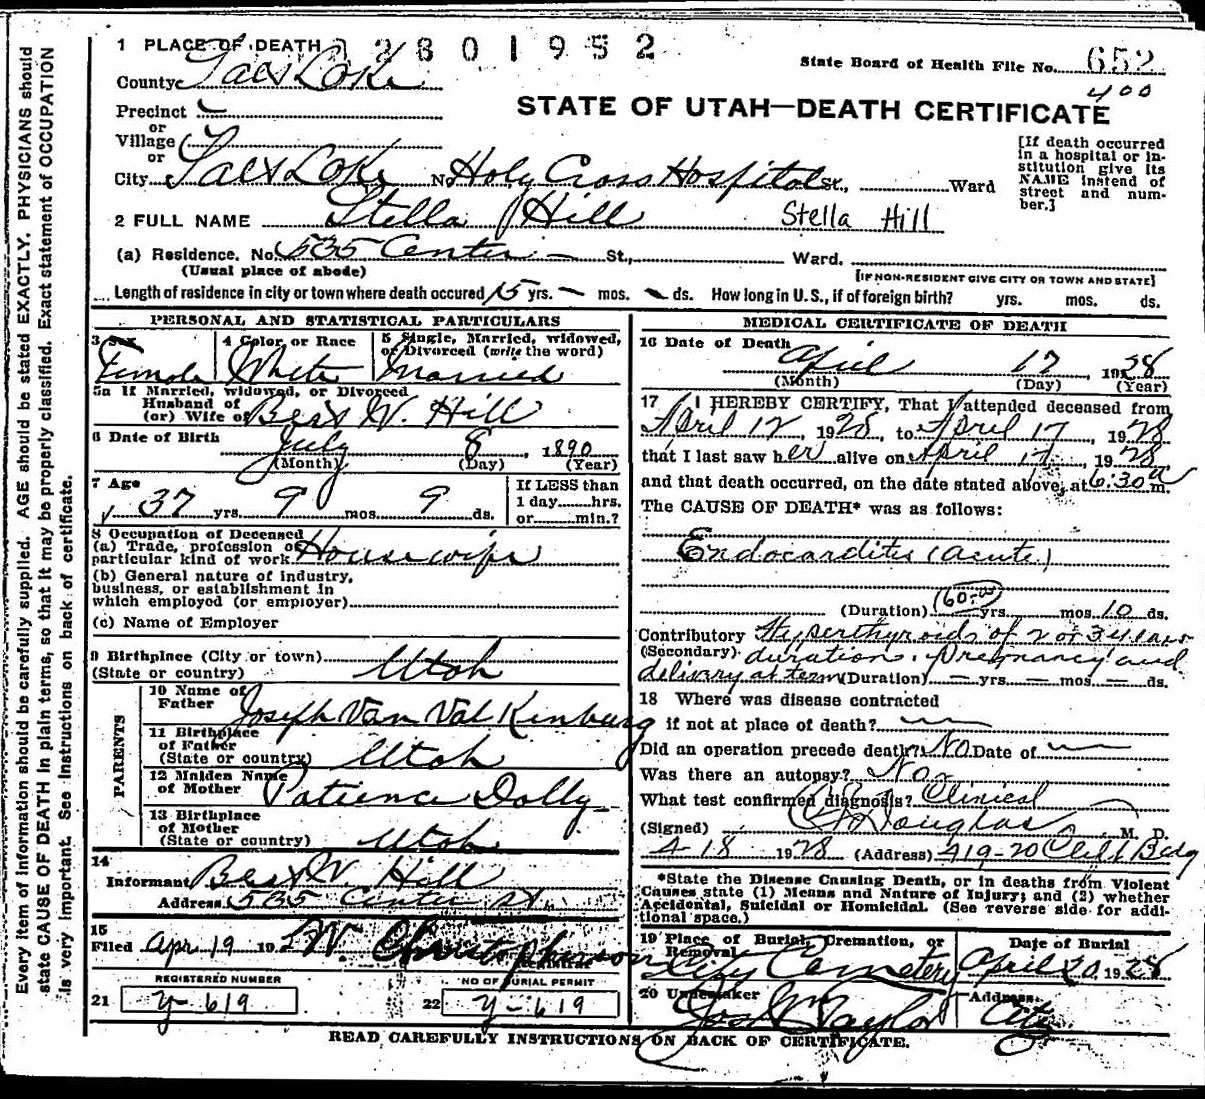 Every item of information should be carefully supplied. AGE should be stated EXACTLY. PHYSICIANS should
state CAUSE OF DEATH in plain terms, so that it may be properly classified. Exact statement of OCCUPATION
is very important. See Instructions on back of certificate.
1 PLACE OF DEATH 2801952
State Board of Health File No. 652
400
County Salt Lake
STATE OF UTAH—DEATH CERTIFICATE
Precinct
or
Village
or
City Salt Lake No Holy Cross Hospital St., Ward
[If death occurred
in a hospital or in-
stitution give its
NAME instead of
street and num-
ber.]
2 FULL NAME Stella Hill Stella Hill
(a) Residence. No. 535 Center St., Ward.
(Usual place of abode)
[IF NON-RESIDENT GIVE CITY OR TOWN AND STATE]
Length of residence in city or town where death occured 15 yrs. — mos. — ds. How long in U.S., if of foreign birth? yrs. mos. ds.
PERSONAL AND STATISTICAL PARTICULARS
3 Sex 4 Color or Race 5 Single, Married, widowed,
or Divorced (write the word)
Female White Married
5a If Married, widowed, or Divorced
Husband of
(or) Wife of W. Hill
6 Date of Birth July 8, 1890
(Month) (Day) (Year)
7 Age
37 yrs. 9 mos. 9 ds.
If LESS than
1 day hrs.
or min.?
8 Occupation of Deceased
(a) Trade, profession or
particular kind of work Housewife
(b) General nature of industry,
business, or establishment in
which employed (or employer)
(c) Name of Employer
9 Birthplace (City or town)
(State or country) Utah
PARENTS
10 Name of
Father Joseph Van Valkenburg
11 Birthplace
of Father
(State or country) Utah
12 Maiden Name
of Mother Patience Dolly
13 Birthplace
of Mother
(State or country) Utah
14
Informant W. Hill
Address 535 Center St.
15
Filed Apr 19 192 W. Christopherson
REGISTERED NUMBER
NO OF BURIAL PERMIT
21 Y-619 22 Y-619
MEDICAL CERTIFICATE OF DEATH
16 Date of Death
April 17, 1928
(Month) (Day) (Year)
17 I HEREBY CERTIFY, That I attended deceased from
April 12, 1928, to April 17, 1928
that I last saw her alive on April 17, 1928
and that death occurred, on the date stated above, at 6:30 a m.
The CAUSE OF DEATH* was as follows:
Endocarditis (acute)
(Duration) yrs. mos. 10 ds.
Contributory Hyperthyroids of 2 or 3 years
(Secondary) duration. Pregnancy and
delivery at term (Duration) — yrs. — mos. — ds.
18 Where was disease contracted
if not at place of death?
Did an operation precede death? No Date of
Was there an autopsy? No
What test confirmed diagnosis? Clinical
(Signed) Douglas M. D.
4-18 1928 (Address) 419-20 Clift Bldg
*State the Disease Causing Death, or in deaths from Violent
Causes state (1) Means and Nature of Injury; and (2) whether
Accidental, Suicidal or Homicidal. (See reverse side for addi-
tional space.)
19 Place of Burial, Cremation, or
Removal
City Cemetery
Date of Burial
April 20 1928
20 Undertaker
Jos Wm Taylor
Address
City
READ CAREFULLY INSTRUCTIONS ON BACK OF CERTIFICATE.